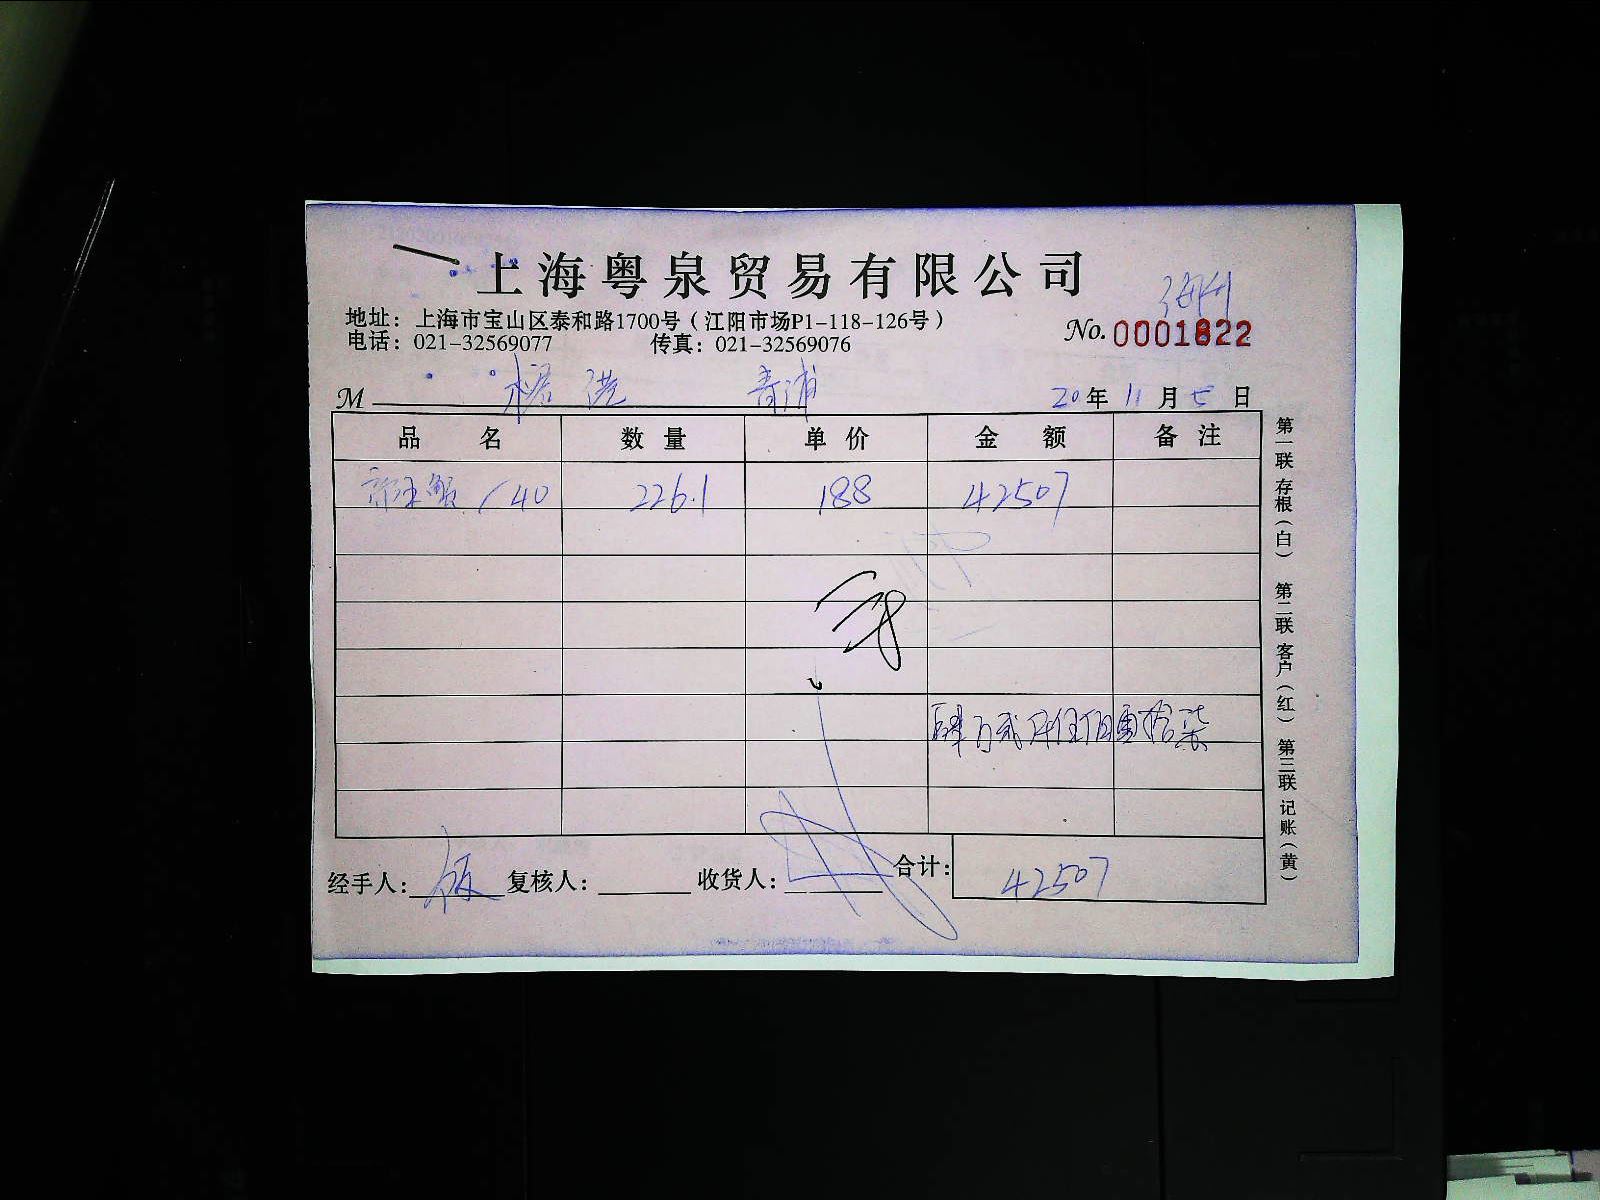 上海粤泉贸易有限公司
地址：上海市宝山区泰和路1700号（江阳市场P1-118-126号）
电话：021-32569077 传真：021-32569076
No. 0001822
M 青浦 20年 11月 七日
品 名 数 量 单 价 金 额 备 注
/40 226.1 188 42507
肆万贰仟伍佰零拾柒
经手人： 复核人： 收货人： 合计： 42507
第一联 存根（白） 第二联 客户（红） 第三联 记账（黄）